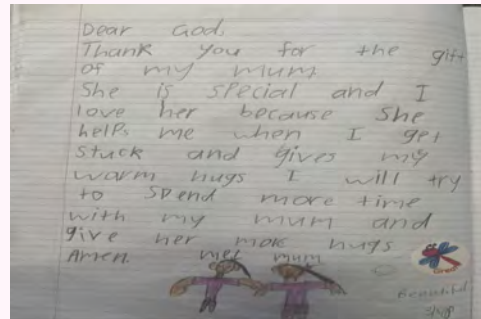 Dear God,
Thank you for the gift
of my mum
She is special and I
love her because she
helps me when I get
stuck and gives my
warm hugs I will try
to spend more time
with my mum and
give her more hugs
Amen. me mum
Beautiful